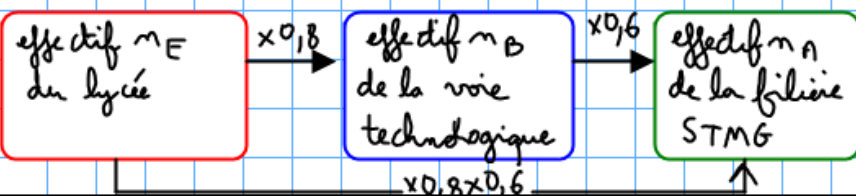 effectif n_E
du lycée
×0,8
effectif n_B
de la voie
technologique
×0,6
effectif n_A
de la filière
STMG
×0,8×0,6